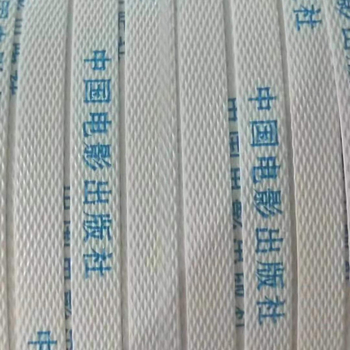 中国电影出版社
中国电影出版社
社
中
中